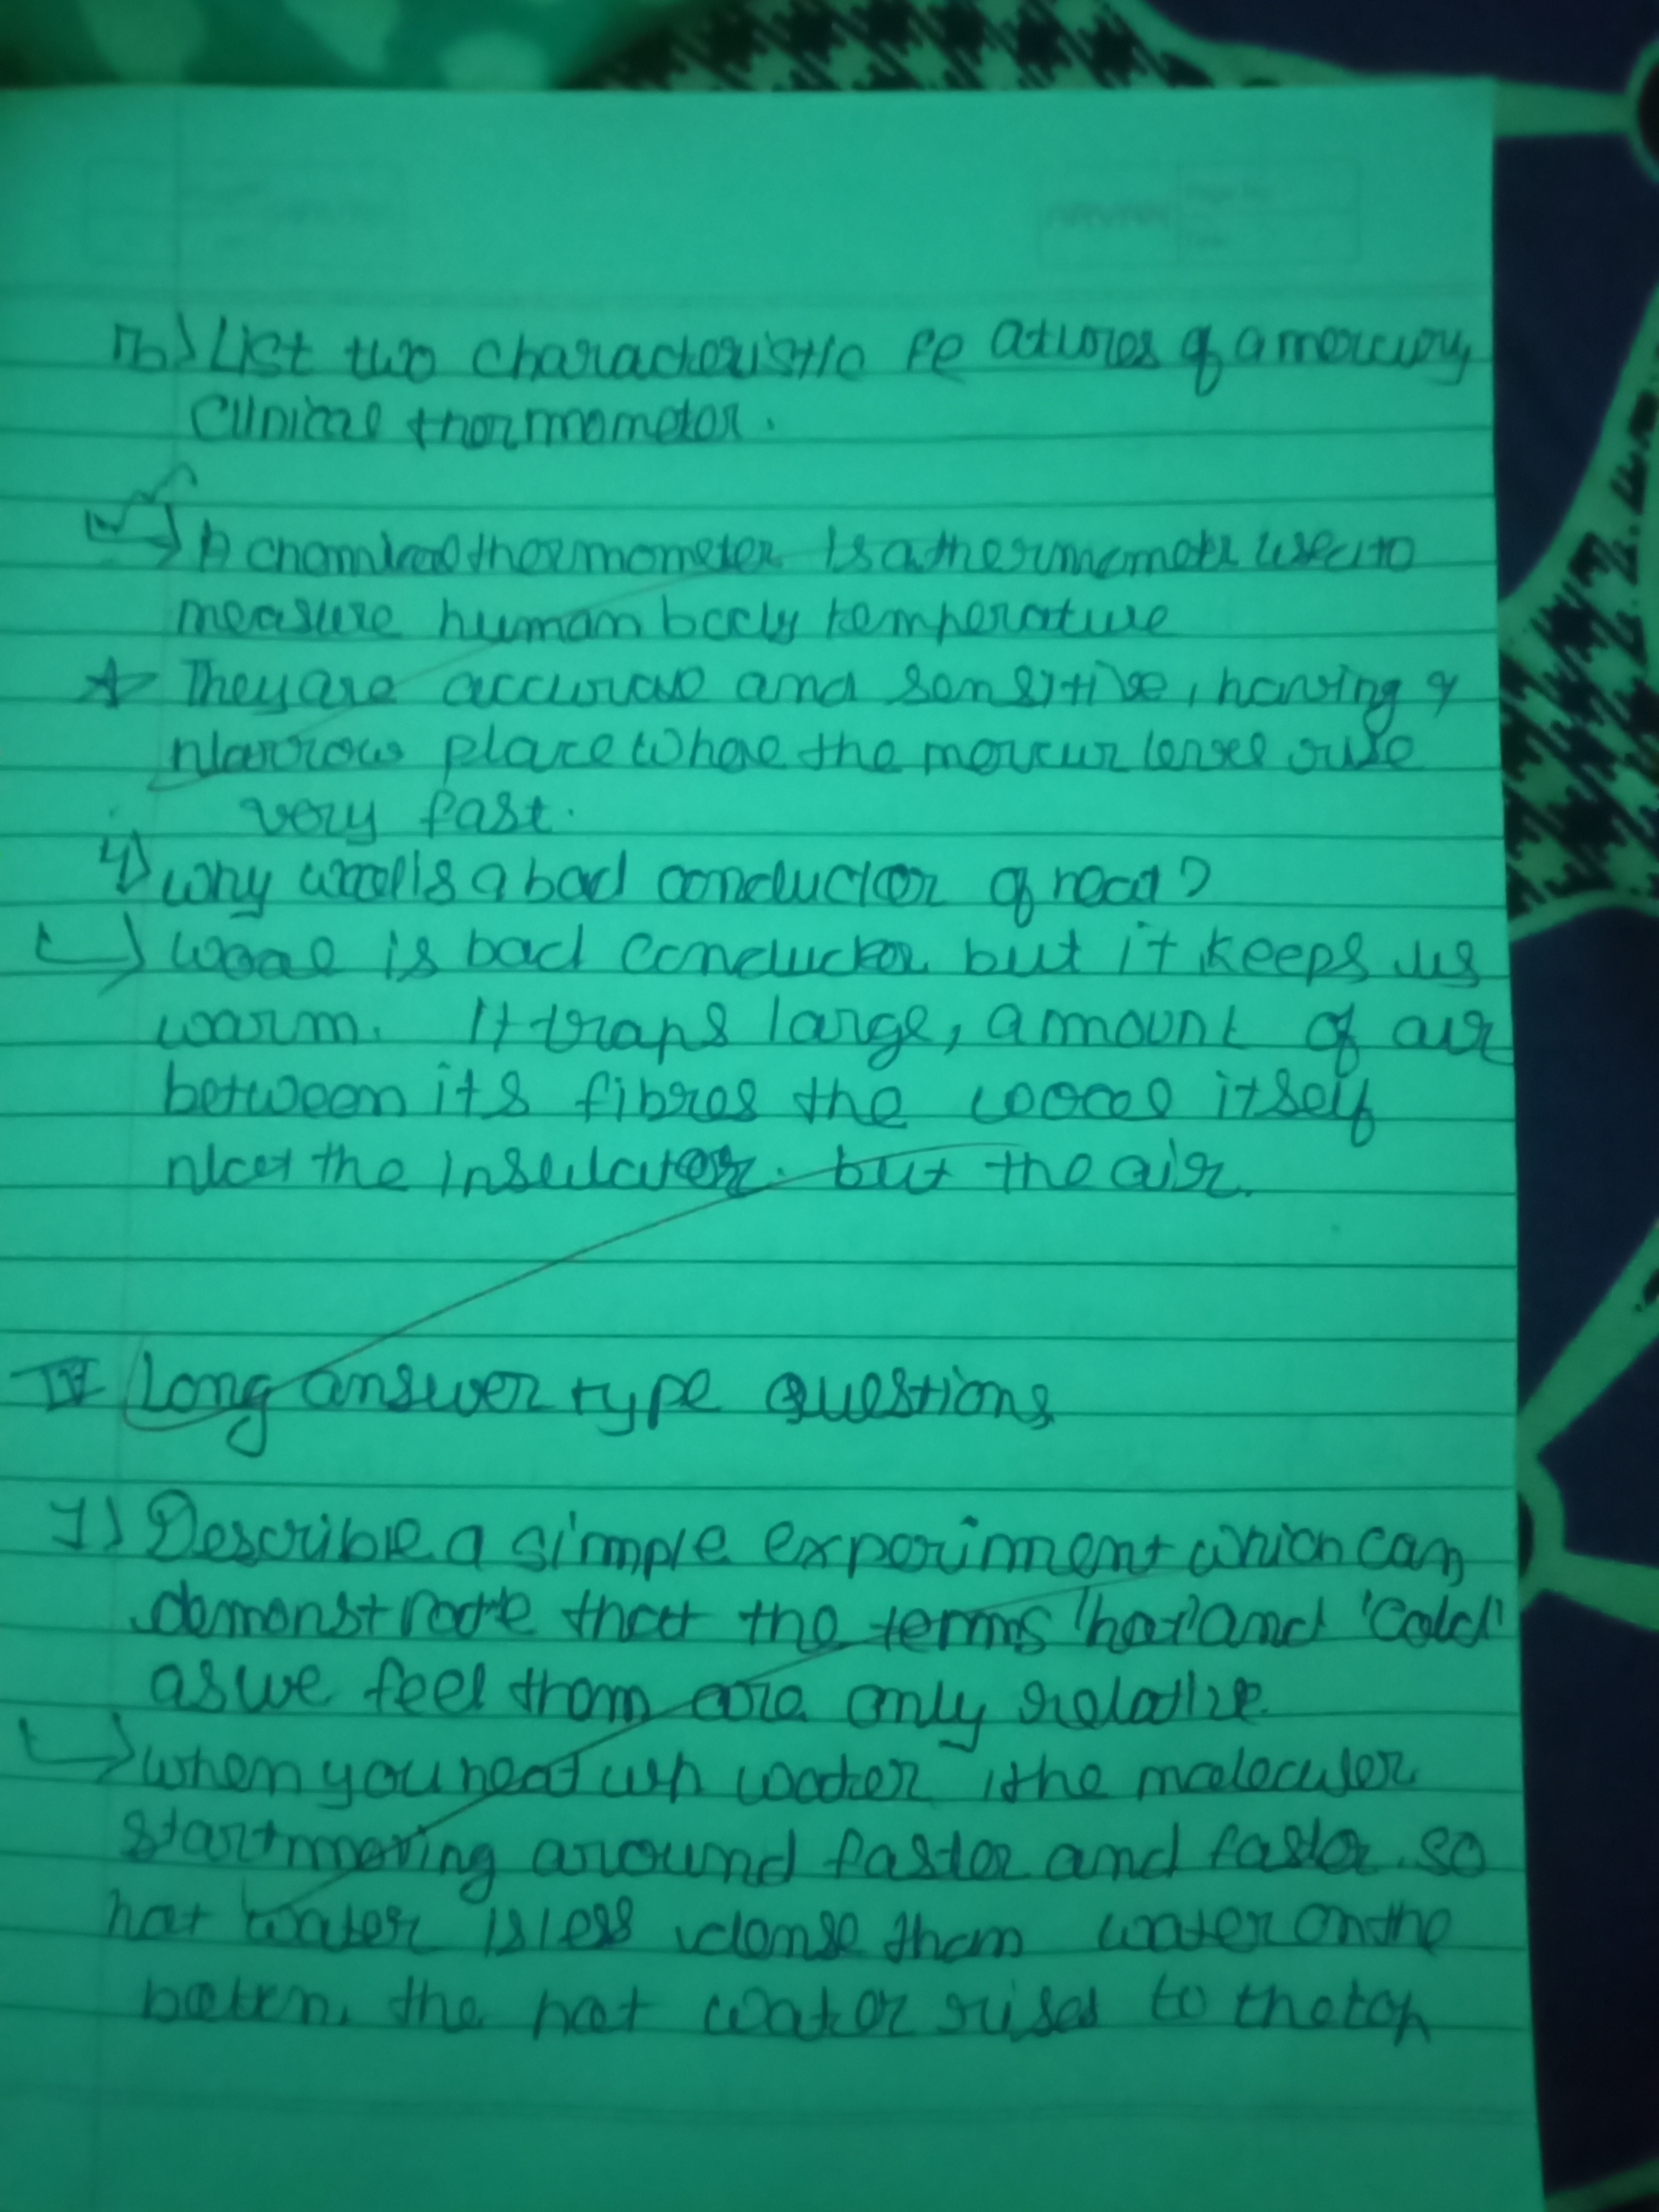 b) List two characteristic fe atures of a mercury
Clinical thermometer.
A chemical thermometer is a thermometer used to
measure human body temperature
They are accurate and sensitive, having a
narrow place where the mercur level rise
very fast.
4) why wool is a bad conductor of heat?
wool is bad conductor but it keeps us
warm. It traps large, amount of air
between its fibres the wool itself
not the insulator. but the air.
IV Long answer type questions
1) Describe a simple experiment which can
demonstrate that the terms 'hot' and 'cold'
as we feel them are only relative.
when you heat up water, the molecular
start moving around faster and faster. so
hot water is less dense than water on the
the hot water rises to the top